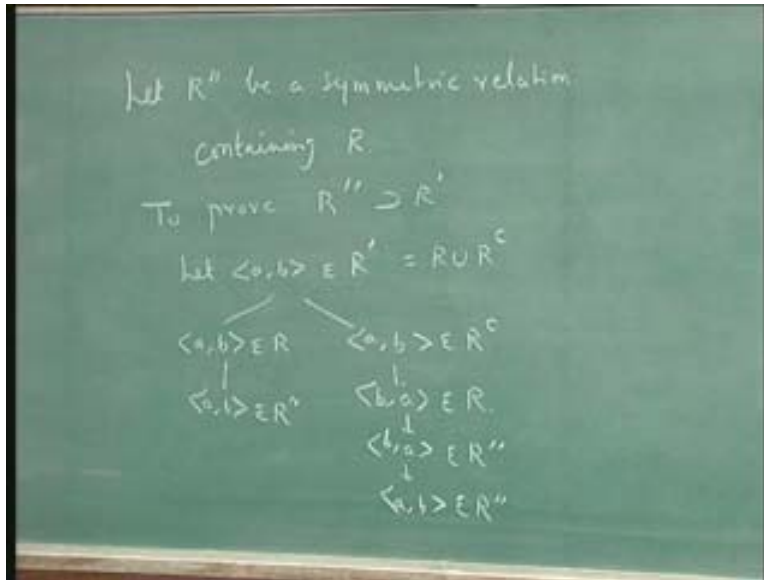 Let R'' be a symmetric relation
containing R.
To prove R'' ⊃ R'
Let <a,b> ε R' = R ∪ R^c
<a,b> ε R <a,b> ε R^c
<a,b> ε R'' <b,a> ε R.
<b,a> ε R''
<a,b> ε R''